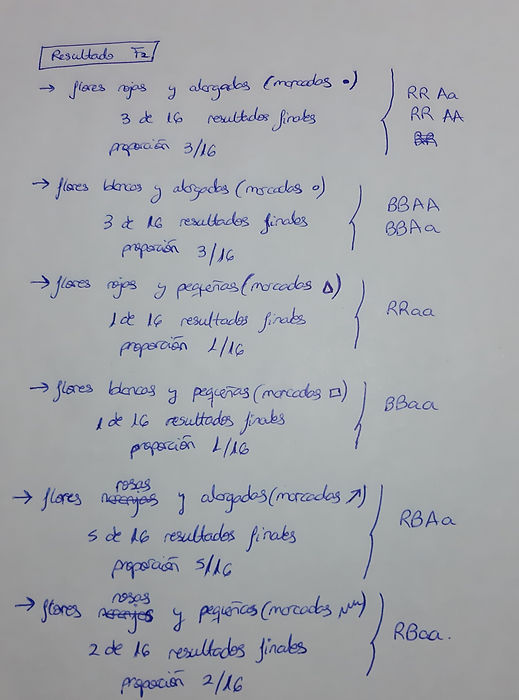 Resultado F2
→ flores rojas y alargadas (marcados •)
3 de 16 resultados finales
proporción 3/16
RR Aa
RR AA
→ flores blancas y alargadas (marcados o)
3 de 16 resultados finales
proporción 3/16
BBAA
BBAa
→ flores rojas y pequeñas (marcados Δ)
1 de 16 resultados finales
proporción 1/16
RRaa
→ flores blancas y pequeñas (marcados □)
1 de 16 resultados finales
proporción 1/16
BBaa
→ flores naranjas rosas y alargadas (marcados ↗)
5 de 16 resultados finales
proporción 5/16
RBAa
→ flores naranjas rosas y pequeñas (marcados)
2 de 16 resultados finales
proporción 2/16
RBaa.